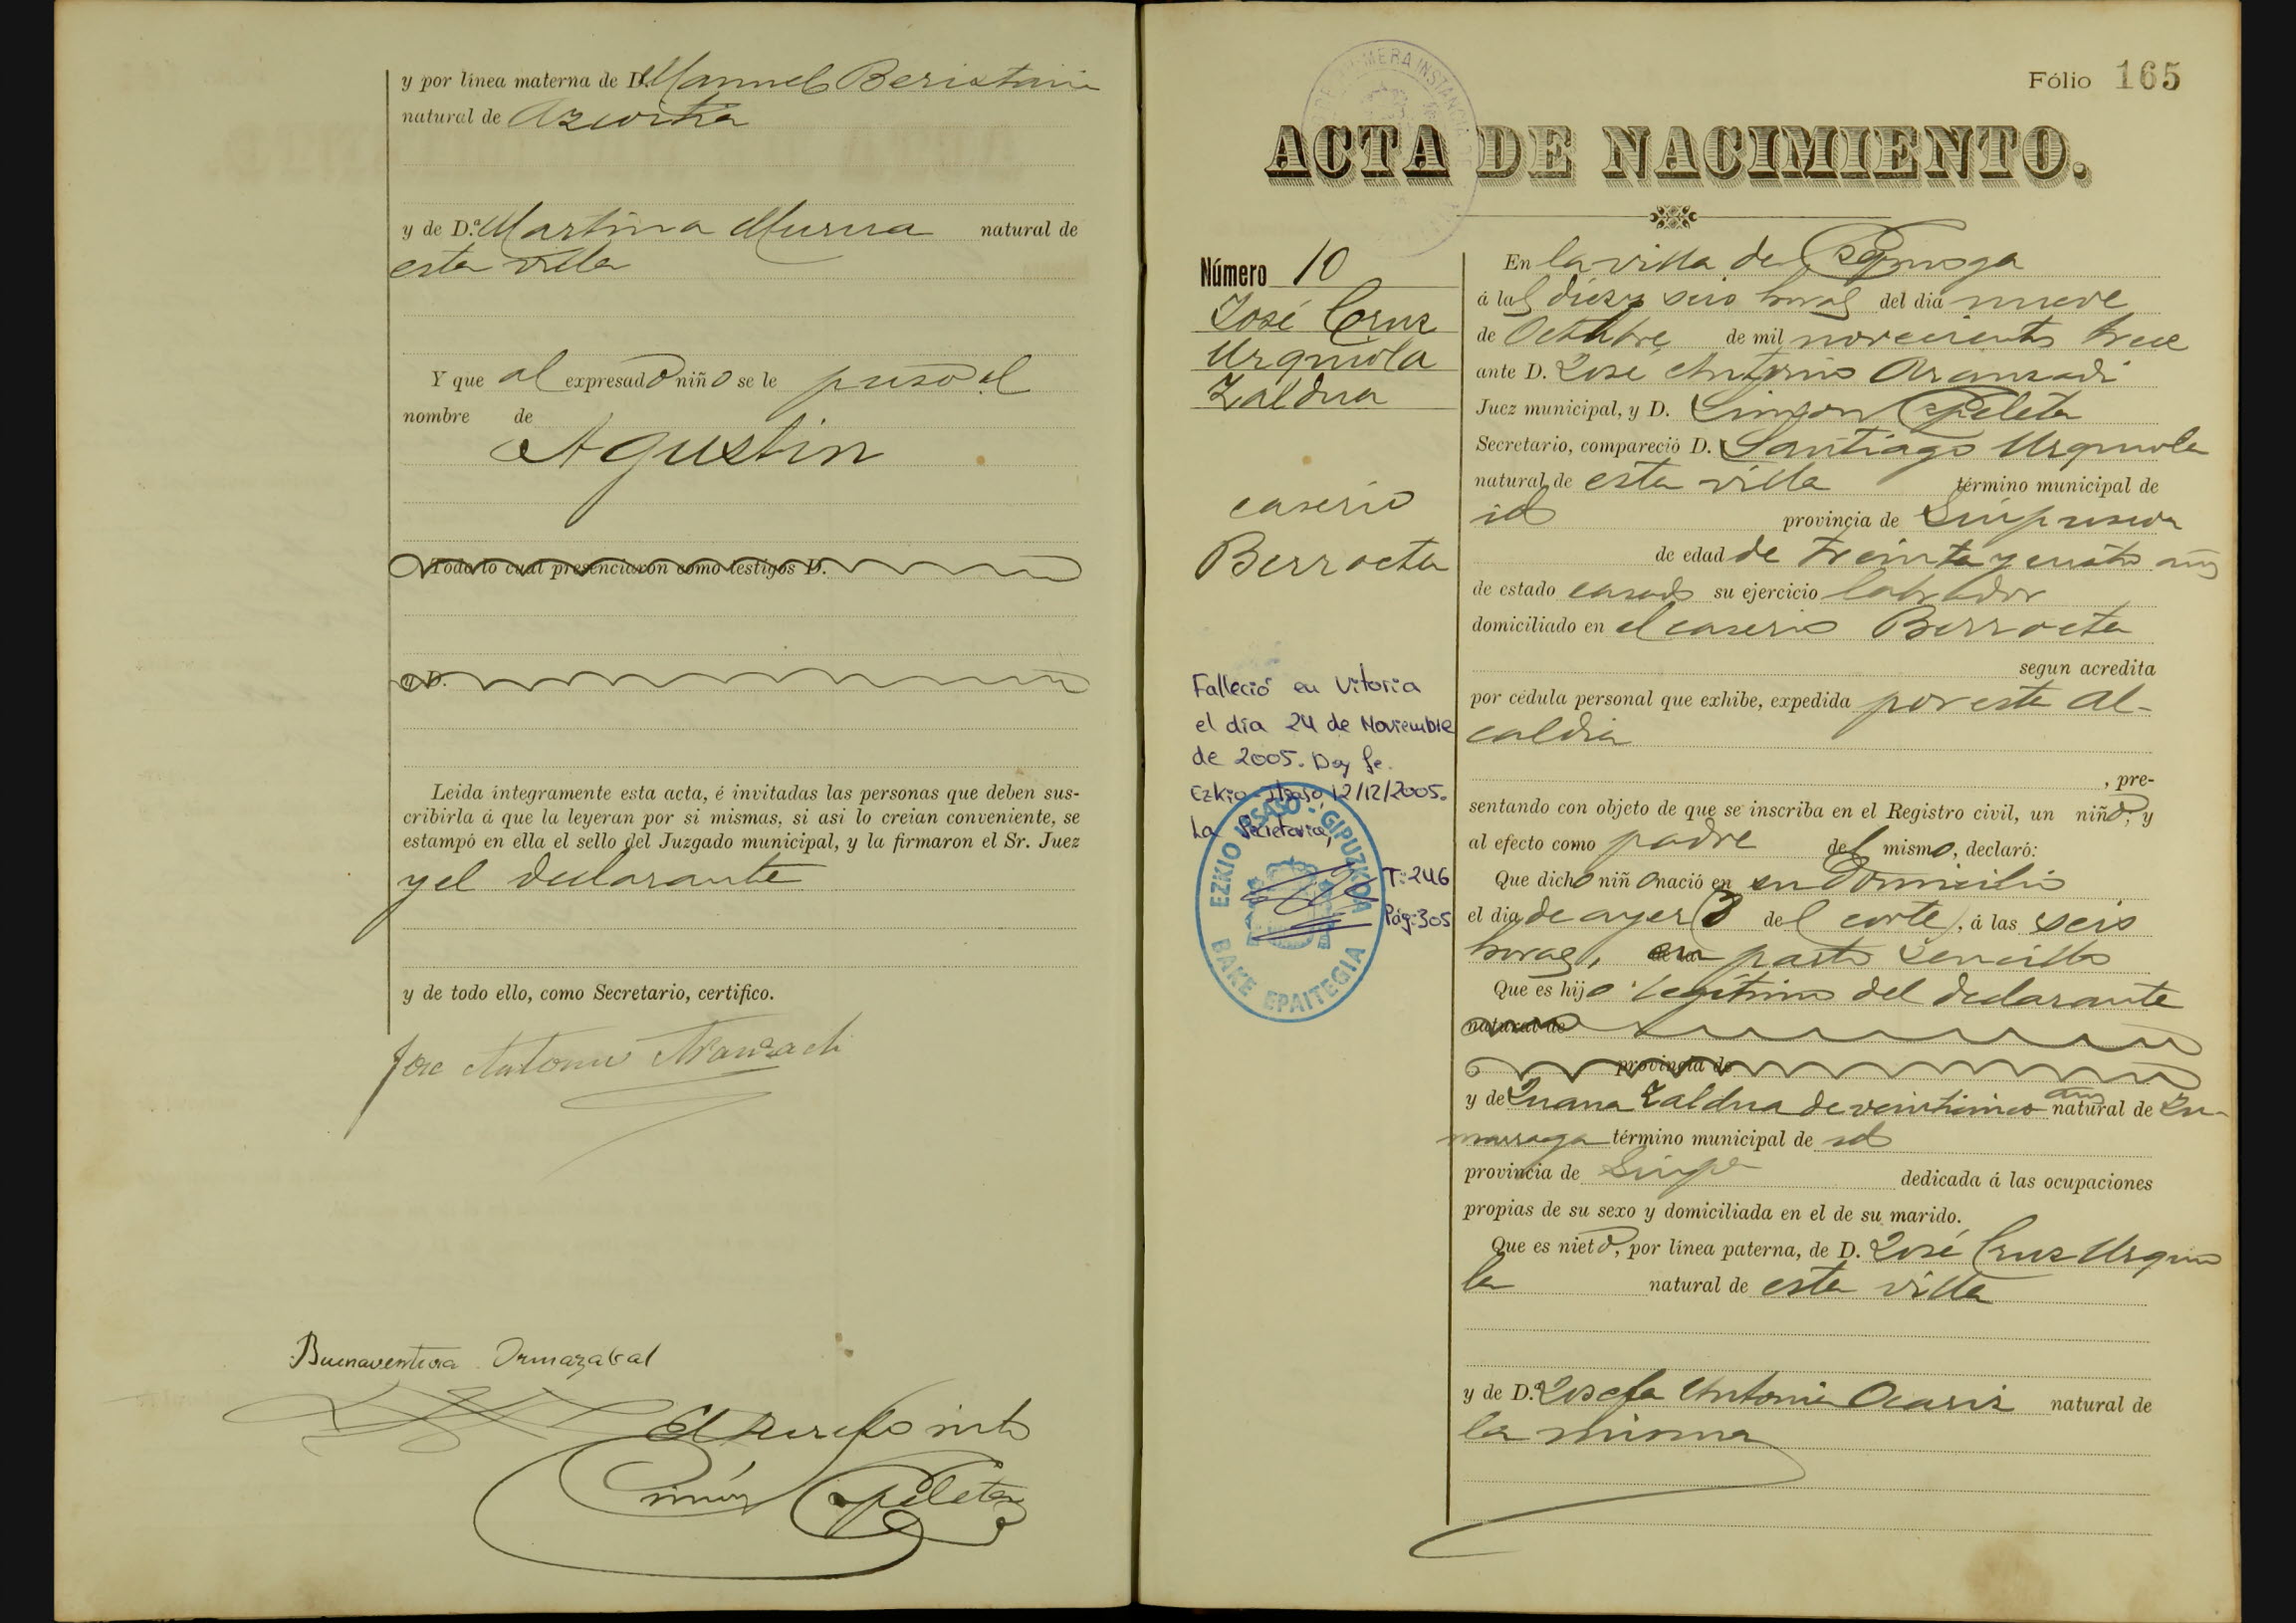 y por línea materna de D. Manuel Beristain
natural de Azcoitia
y de D.ª Martina Murua natural de
esta villa
Y que al expresado niño se le puso el
nombre de
Agustin
Todo lo cual presenciaron como testigos D.
y D.
Leida íntegramente esta acta, é invitadas las personas que deben sus-
cribirla á que la leyeran por sí mismas, si así lo creian conveniente, se
estampó en ella el sello del Juzgado municipal, y la firmaron el Sr. Juez
y el declarante
y de todo ello, como Secretario, certifico.
Jose Antonio Aranzadi
Buenaventura Ormazabal
El
Simón Apeleta
Fólio 165
ACTA DE NACIMIENTO.
Número 10
José Cruz
Urquiola
Zaldua
caserio
Berroeta
Falleció en Vitoria
el día 24 de Noviembre
de 2005. Doy fe.
Ezkio-Itsaso, 12/12/2005.
La Secretaria,
T: 246
Pág: 305
EZKIO ITSASO - GIPUZKOA
BAKE EPAITEGIA
En la villa de
á las diez y seis horas del dia nueve
de Octubre de mil novecientos trece
ante D. José Antonio Aranzadi
Juez municipal, y D. Simon Apeleta
Secretario, compareció D. Santiago Urquiola
natural de esta villa término municipal de
id provincia de Guipuzcoa
de edad de treinta y cuatro años
de estado casado su ejercicio labrador
domiciliado en el caserio Berroeta
segun acredita
por cédula personal que exhibe, expedida por esta Al-
caldia
, pre-
sentando con objeto de que se inscriba en el Registro civil, un niño, y
al efecto como padre del mismo, declaró:
Que dicho niño nació en su domicilio
el dia de ayer 8 del corte, á las seis
horas, en parto sencillo
Que es hijo legítimo del declarante
natural de
provincia de
y de Juana Zaldua de veinticinco años natural de Zu-
marraga término municipal de id
provincia de Guipa dedicada á las ocupaciones
propias de su sexo y domiciliada en el de su marido.
Que es nieto, por línea paterna, de D. José Cruz Urquio
la natural de esta villa
y de D.ª Josefa Antonia Ocariz natural de
la misma